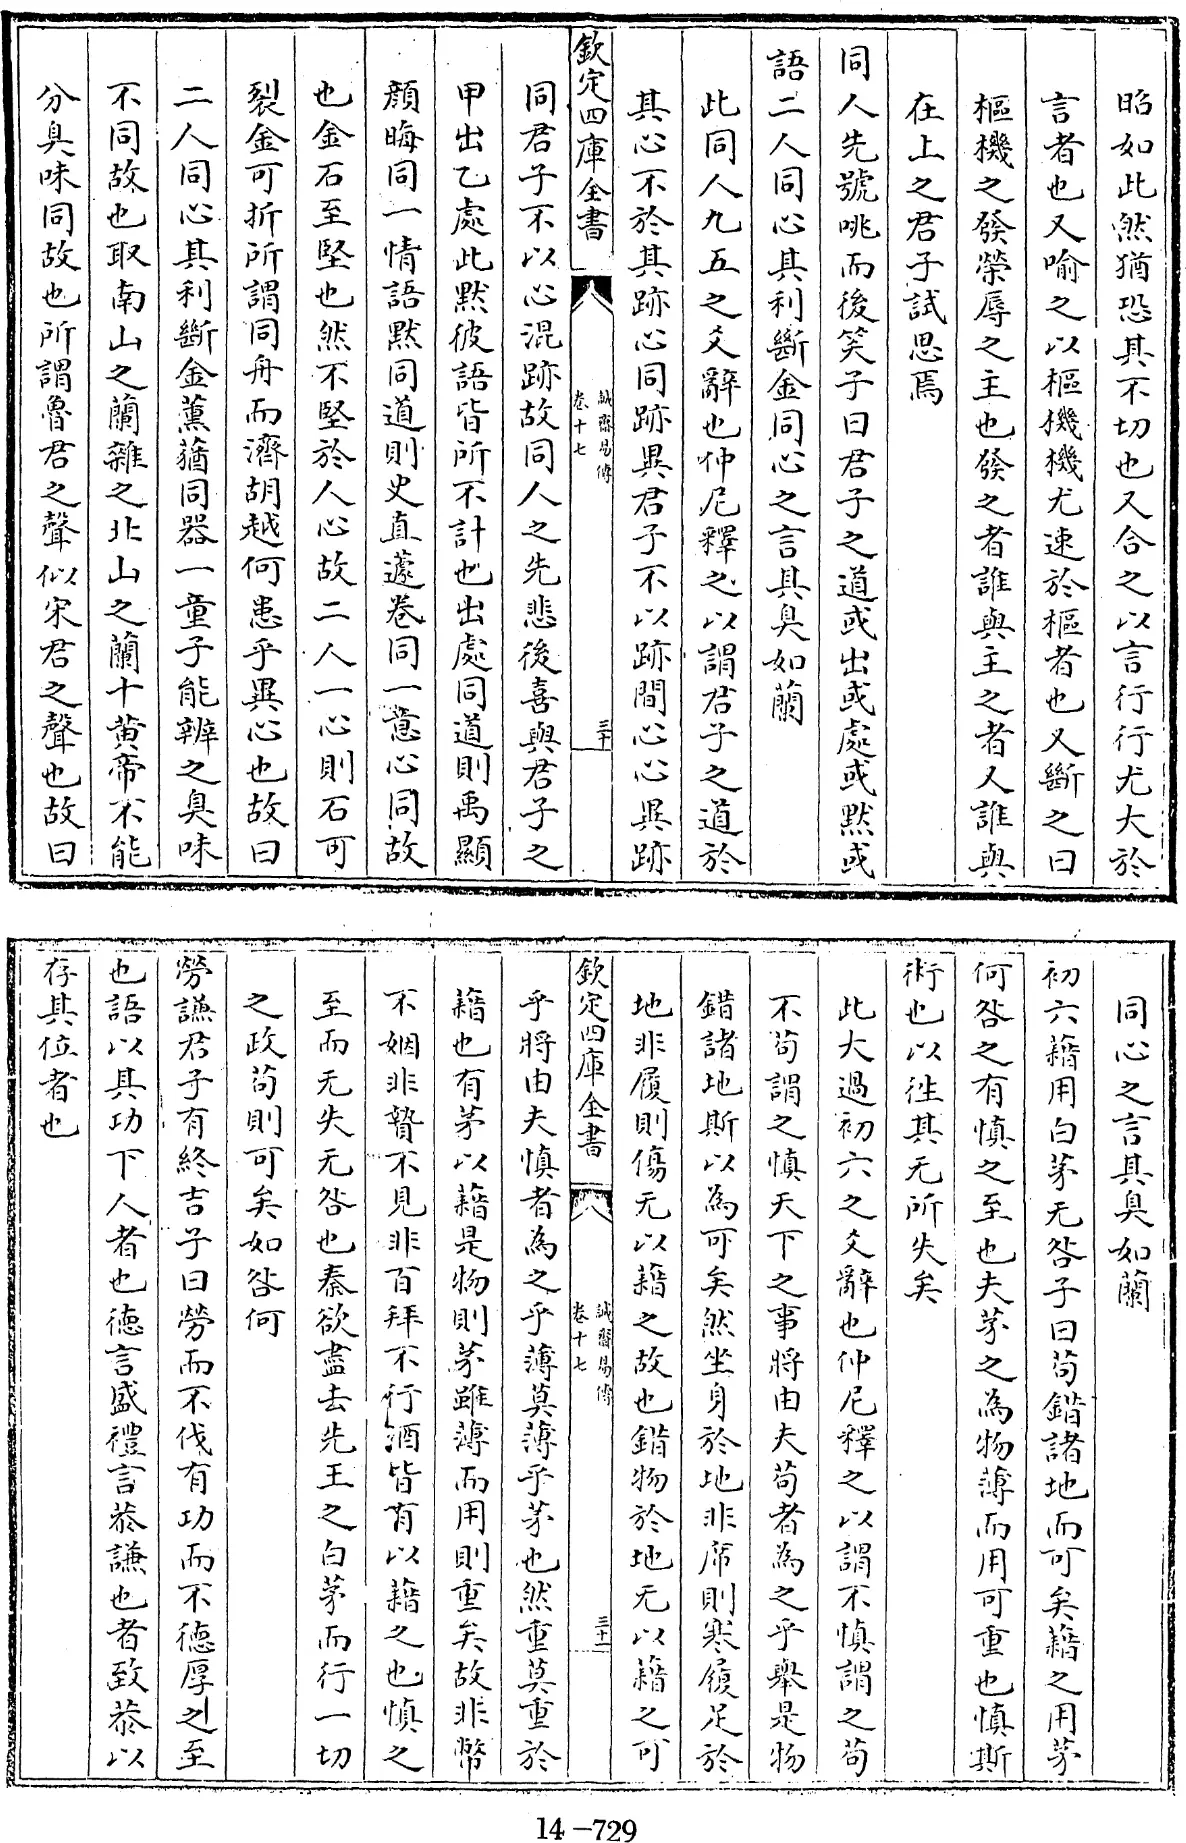 昭如此然猶恐其不切也又合之以言行行尤大於
言者也又喻之以樞機機尤速於樞者也又斷之曰
樞機之發榮辱之主也發之者誰與主之者人誰與
在上之君子試思焉
同人先號咷而後笑子曰君子之道或出或處或黙或
語二人同心其利斷金同心之言其臭如蘭
此同人九五之爻辭也仲尼釋之以謂君子之道於
其心不於其跡心同跡異君子不以跡間心心異跡
欽定四庫全書
誠齋易傳
卷十七
三十
同君子不以心混跡故同人之先悲後喜與君子之
甲出乙處此黙彼語皆所不計也出處同道則禹顯
顔晦同一情語黙同道則史直蘧卷同一意心同故
也金石至堅也然不堅於人心故二人一心則石可
裂金可折所謂同舟而濟胡越何患乎異心也故曰
二人同心其利斷金薰蕕同器一童子能辨之臭味
不同故也取南山之蘭雜之北山之蘭十黄帝不能
分臭味同故也所謂魯君之聲似宋君之聲也故曰
同心之言其臭如蘭
初六藉用白茅无咎子曰茍錯諸地而可矣藉之用茅
何咎之有慎之至也夫茅之為物薄而用可重也慎斯
術也以往其无所失矣
此大過初六之爻辭也仲尼釋之以謂不慎謂之茍
不茍謂之慎天下之事將由夫茍者為之乎舉是物
錯諸地斯以為可矣然坐身於地非席則寒履足於
地非履則傷无以藉之故也錯物於地无以藉之可
欽定四庫全書
誠齋易傳
卷十七
三十一
乎將由夫慎者為之乎薄莫薄乎茅也然重莫重於
藉也有茅以藉是物則茅雖薄而用則重矣故非幣
不姻非贄不見非百拜不行酒皆有以藉之也慎之
至而无失无咎也秦欲盡去先王之白茅而行一切
之政茍則可矣如咎何
勞謙君子有終吉子曰勞而不伐有功而不德厚之至
也語以其功下人者也德言盛禮言恭謙也者致恭以
存其位者也
14-729